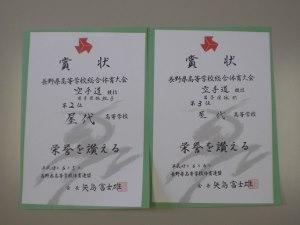 賞状
長野県高等学校総合体育大会
空手道競技
第2位
屋代 高等学校
栄誉を讃える
長野県高等学校体育連盟
会長 矢島富士雄
賞状
長野県高等学校総合体育大会
空手道競技
第3位
屋代 高等学校
栄誉を讃える
長野県高等学校体育連盟
会長 矢島富士雄